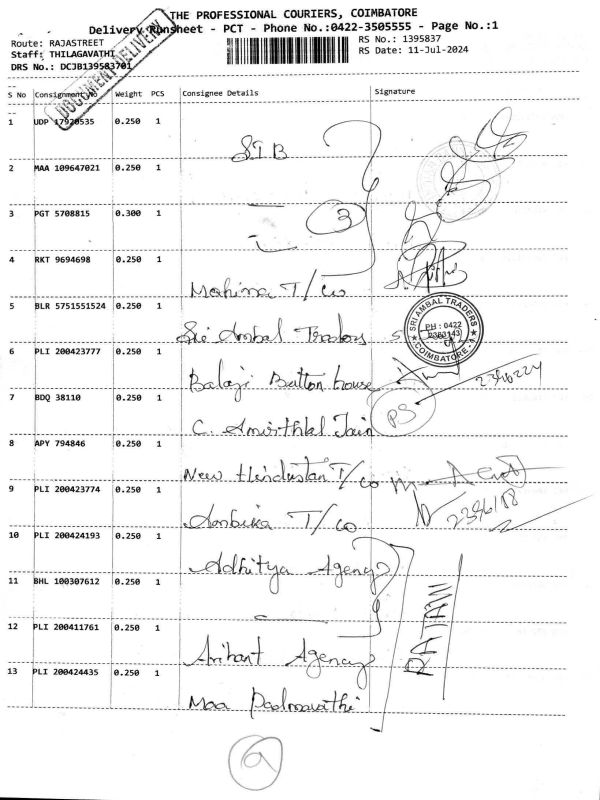 THE PROFESSIONAL COURIERS, COIMBATORE
Delivery Runsheet - PCT - Phone No.:0422-3505555 - Page No.:1
Route: RAJASTREET
RS No.: 1395837
Staff: THILAGAVATHI
RS Date: 11-Jul-2024
DRS No.: DCJB139583701
DOCUMENT DELIVERY
S No Consignment No Weight PCS Consignee Details Signature
1 UDP 17920535 0.250 1 S I B
2 MAA 109647021 0.250 1
3 PGT 5708815 0.300 1 3
4 RKT 9694698 0.250 1 Mahima T/co
5 BLR 5751551524 0.250 1 Sri Ambal Traders
SRI AMBAL TRADERS
PH : 0422
2383143
COIMBATORE - 1
6 PLI 200423777 0.250 1 Balaji Button house
7 BDQ 38110 0.250 1 C. Amirthlal Jain PS
8 APY 794846 0.250 1 New Hindustan T/co
9 PLI 200423774 0.250 1 Ambika T/co
10 PLI 200424193 0.250 1 Adhitya Agency
11 BHL 100307612 0.250 1
12 PLI 200411761 0.250 1 Arihant Agency
13 PLI 200424435 0.250 1 Maa Padmavathi
RATAN
9